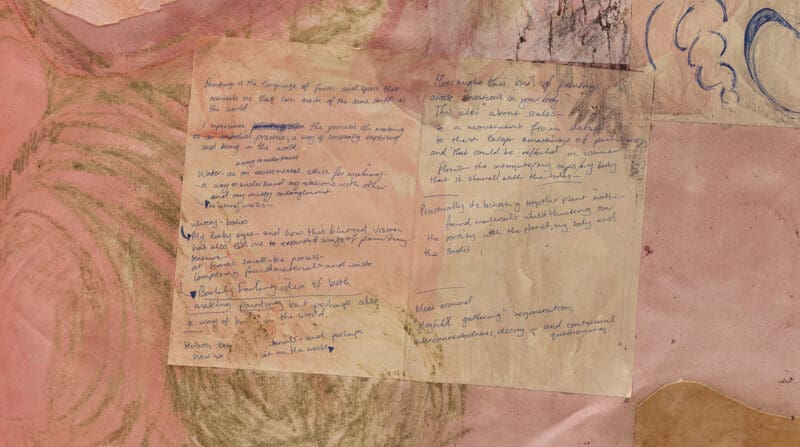 Painting is the language of form and space that
reminds me that I am made of the same stuff as
the world.
I experience the process of making
as an practice, a way of sensorially exploring
and being in the world.
a way to understand
Water - as an environmental ethics for making.
- a way to understand my relations with other
and my messy entanglement
watery - bodies
My leaky eyes - and how this blurred vision
has also led me to expanded ways of painting.
texture.
at times small-like process -
composing found materials and waste.
Bodily feeling, idea of both
making paintings but perhaps also
a way of in the world.
tension and perhaps
how we on the world
How might this kind of painting
arouse sensations in your body
This also about scales -
is a movement from
to these larger of painting
and that could be reflected in
flows - the my body
that is shared with the tides -
Practically its bringing together plant matter
found materials whilst thinking over
the porosity with the planet, my body and
the studio
Ideas around
"playfull gathering" regeneration,
interconnectedness, decay - and continual
questioning